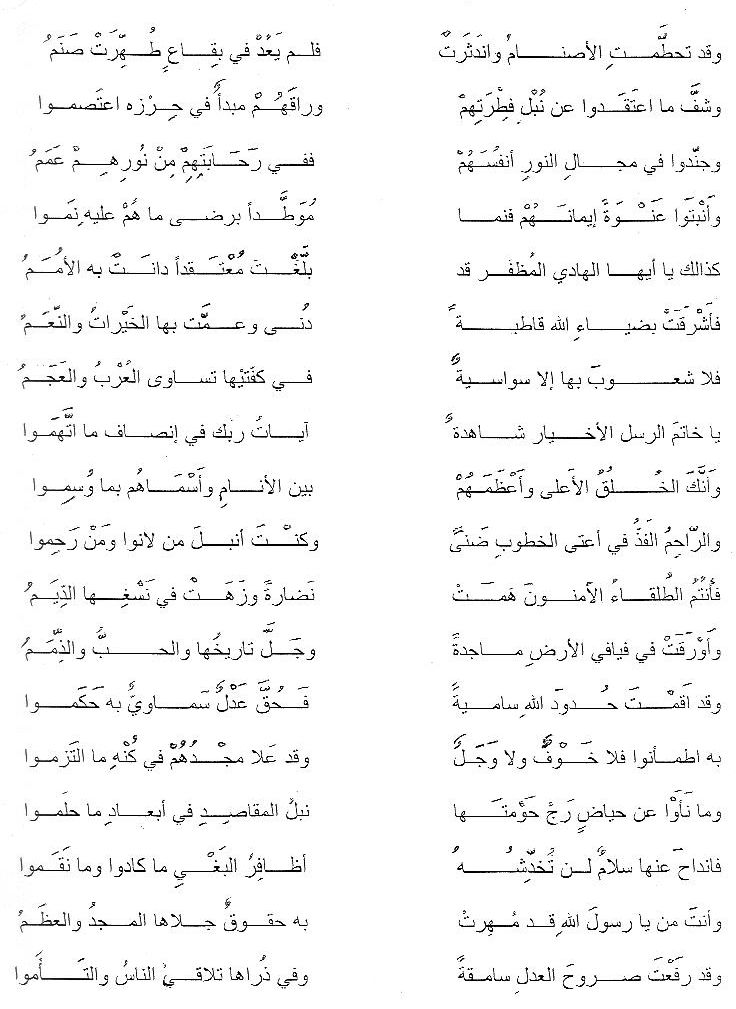 وقد تحطَّمتِ الأصنامُ واندَثَرَتْ فلم يَعُدْ في بِقاعٍ طُهِّرَتْ صَنَمُ
وشفَّ ما اعتَقَدوا عن نُبْلِ فِطْرَتِهِمْ وراقَهُمْ مبدأٌ في حِرْزِه اعتَصموا
وجنَّدوا في مجالِ النورِ أنفُسَهُمْ ففي رَحَابَتِهِمْ مِنْ نُورِهِمْ عَمَمُ
وأَنْبَتَوا عَنْوَةً إيمانَهُمْ فنما مُوَطَّداً برضى ما هُمْ عليه نِمَوا
كذالك يا أيها الهادي المُظفر قد بلَّغْتَ مُعْتَقداً دانَتْ به الأُمَمُ
فأَشْرَقَتْ بضياءِ الله قاطبةً دُنى وعمَّت بها الخَيْراتُ والنِّعَمُ
فلا شعوبَ بها إلا سواسيةٌ في كفَتيْها تساوى العُرْبُ والعَجَمُ
يا خاتمَ الرسل الأخيار شاهدةٌ آياتُ ربك في إنصاف ما اتَّهَمَوا
وأنَّكَ الخُلُقُ الأعلى وأعْظَمَهُمْ بين الأنامِ وأسْمَاهُم بما وُسِموا
والرّاحِمُ الفَذُّ في أعتى الخطوبِ ضَنىً وكنْتَ أنبلَ من لانوا ومَنْ رَحِموا
فأنتُمُ الطُلقاءُ الآمنونَ هَمتْ نَضارةً وزَهَتْ في نَسْغِها الدِّيَمُ
وأَوْرَقَتْ في فيافي الأرضِ ماجدةً وجَلَّ تاريخُها والحبُّ والذِّمَمُ
وقد أقمْتَ حُدودَ الله ساميةً فَحُقَّ عَدْلٌ سَماويٌّ به حَكَموا
به اطمأنوا فلا خَوْفٌ ولا وَجَلٌ وقد عَلا مجْدُهُمْ في كُنْهِ ما التَزموا
وما نَأَوْا عن حياضٍ رَجْ حَوْمتَها نبلُ المقاصِدِ في أبعادِ ما حلَموا
فانداحَ عنها سلامٌ لن تُخدِّشُهُ أظافِرُ البَغْيِ ما كادوا وما نَقَموا
وأنتَ من يا رسولَ اللهِ قد مُهِرتْ به حقوقٌ جلاها المجدُ والعظَمُ
وقد رفَعْتَ صروحَ العدلِ سامقةً وفي ذُراها تلاقيُ الناسُ والتَأموا